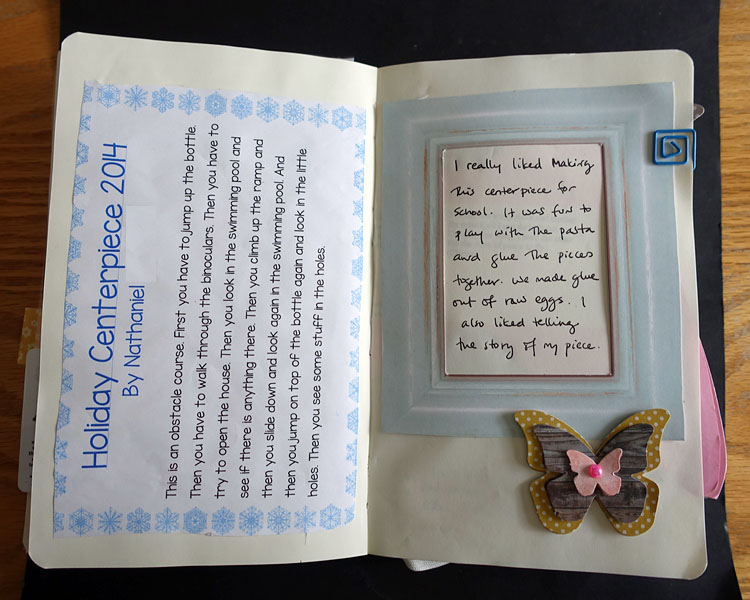 Holiday Centerpiece 2014
By Nathaniel
This is an obstacle course. First you have to jump up the bottle.
Then you have to walk through the binoculars. Then you have to
try to open the house. Then you look in the swimming pool and
see if there is anything there. Then you climb up the ramp and
then you slide down and look again in the swimming pool. And
then you jump on top of the bottle again and look in the little
holes. Then you see some stuff in the holes.
I really liked making
this centerpiece for
school. It was fun to
play with the pasta
and glue the pieces
together. We made glue
out of raw eggs. I
also liked telling
the story of my piece.